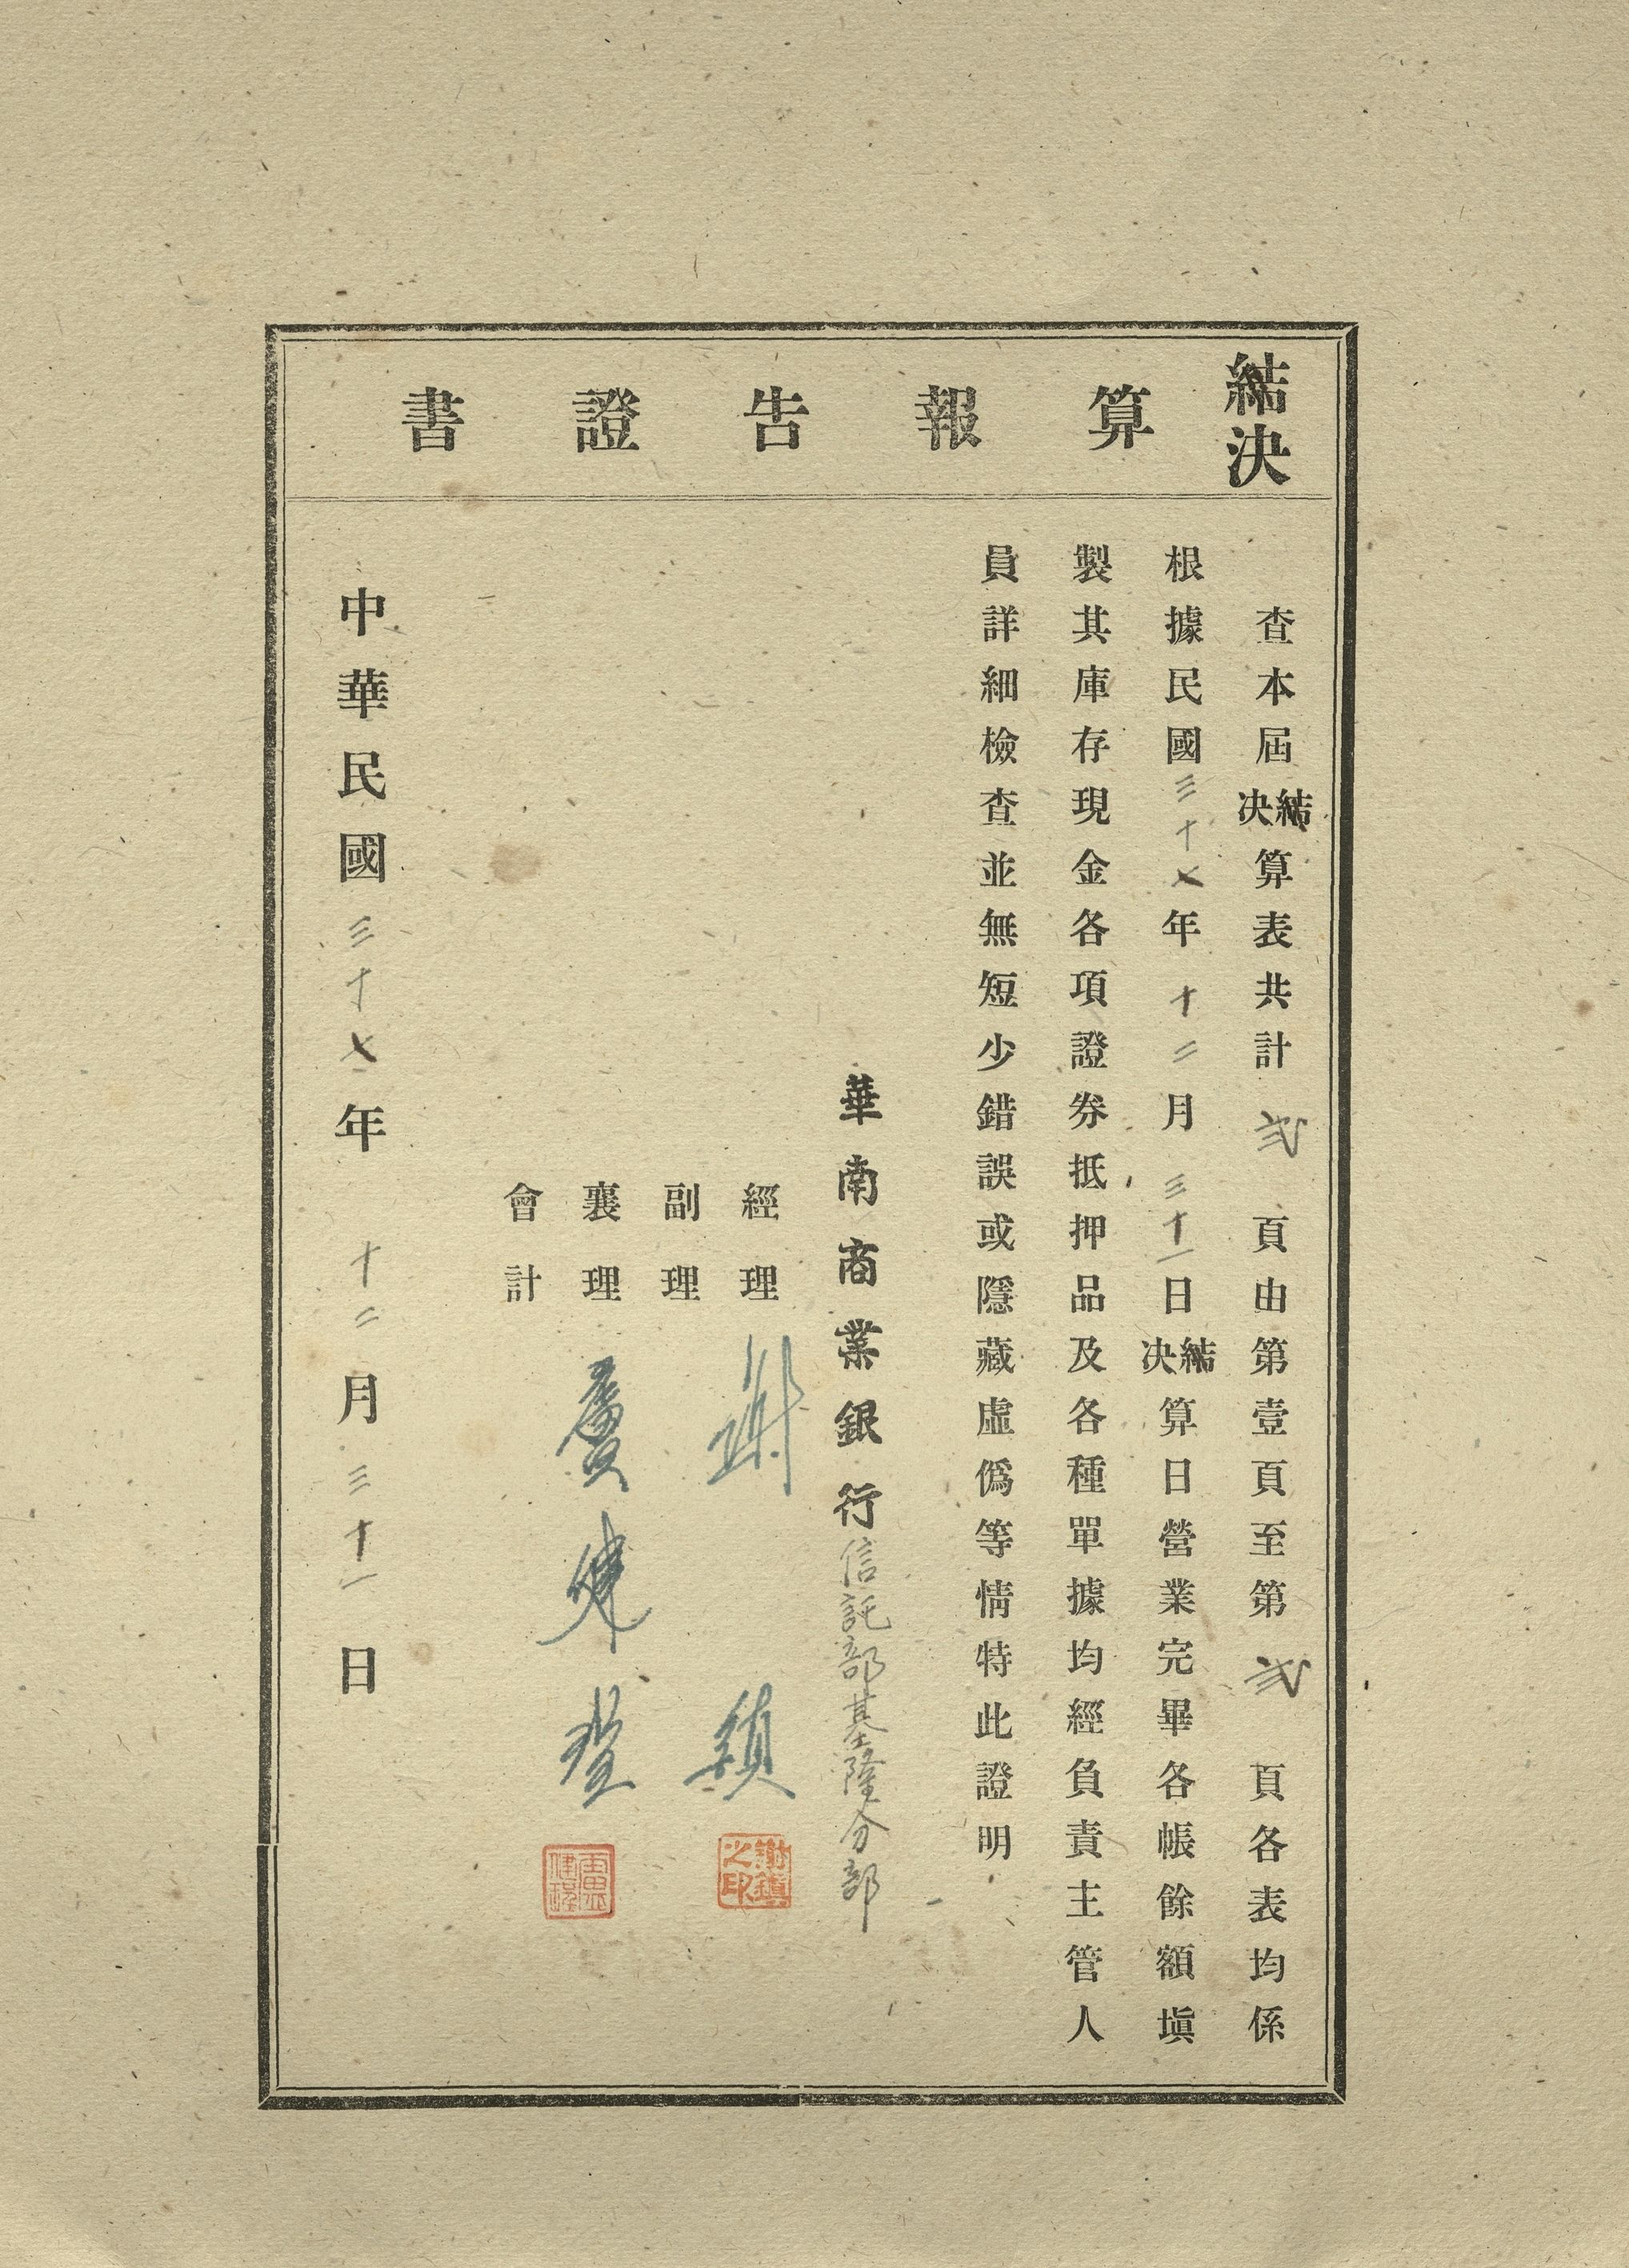 結決算報告證書
查本屆結決算表共計弍頁由第壹頁至第弍頁各表均係
根據民國三十七年十二月三十一日結決算日營業完畢各帳餘額塡
製其庫存現金各項證券抵押品及各種單據均經負責主管人
員詳細檢查並無短少錯誤或隱藏虛僞等情特此證明
華南商業銀行信託部基隆分部
經理 謝鎮
謝鎮之印
副理
襄理 盧健
會計
中華民國三十七年十二月三十一日